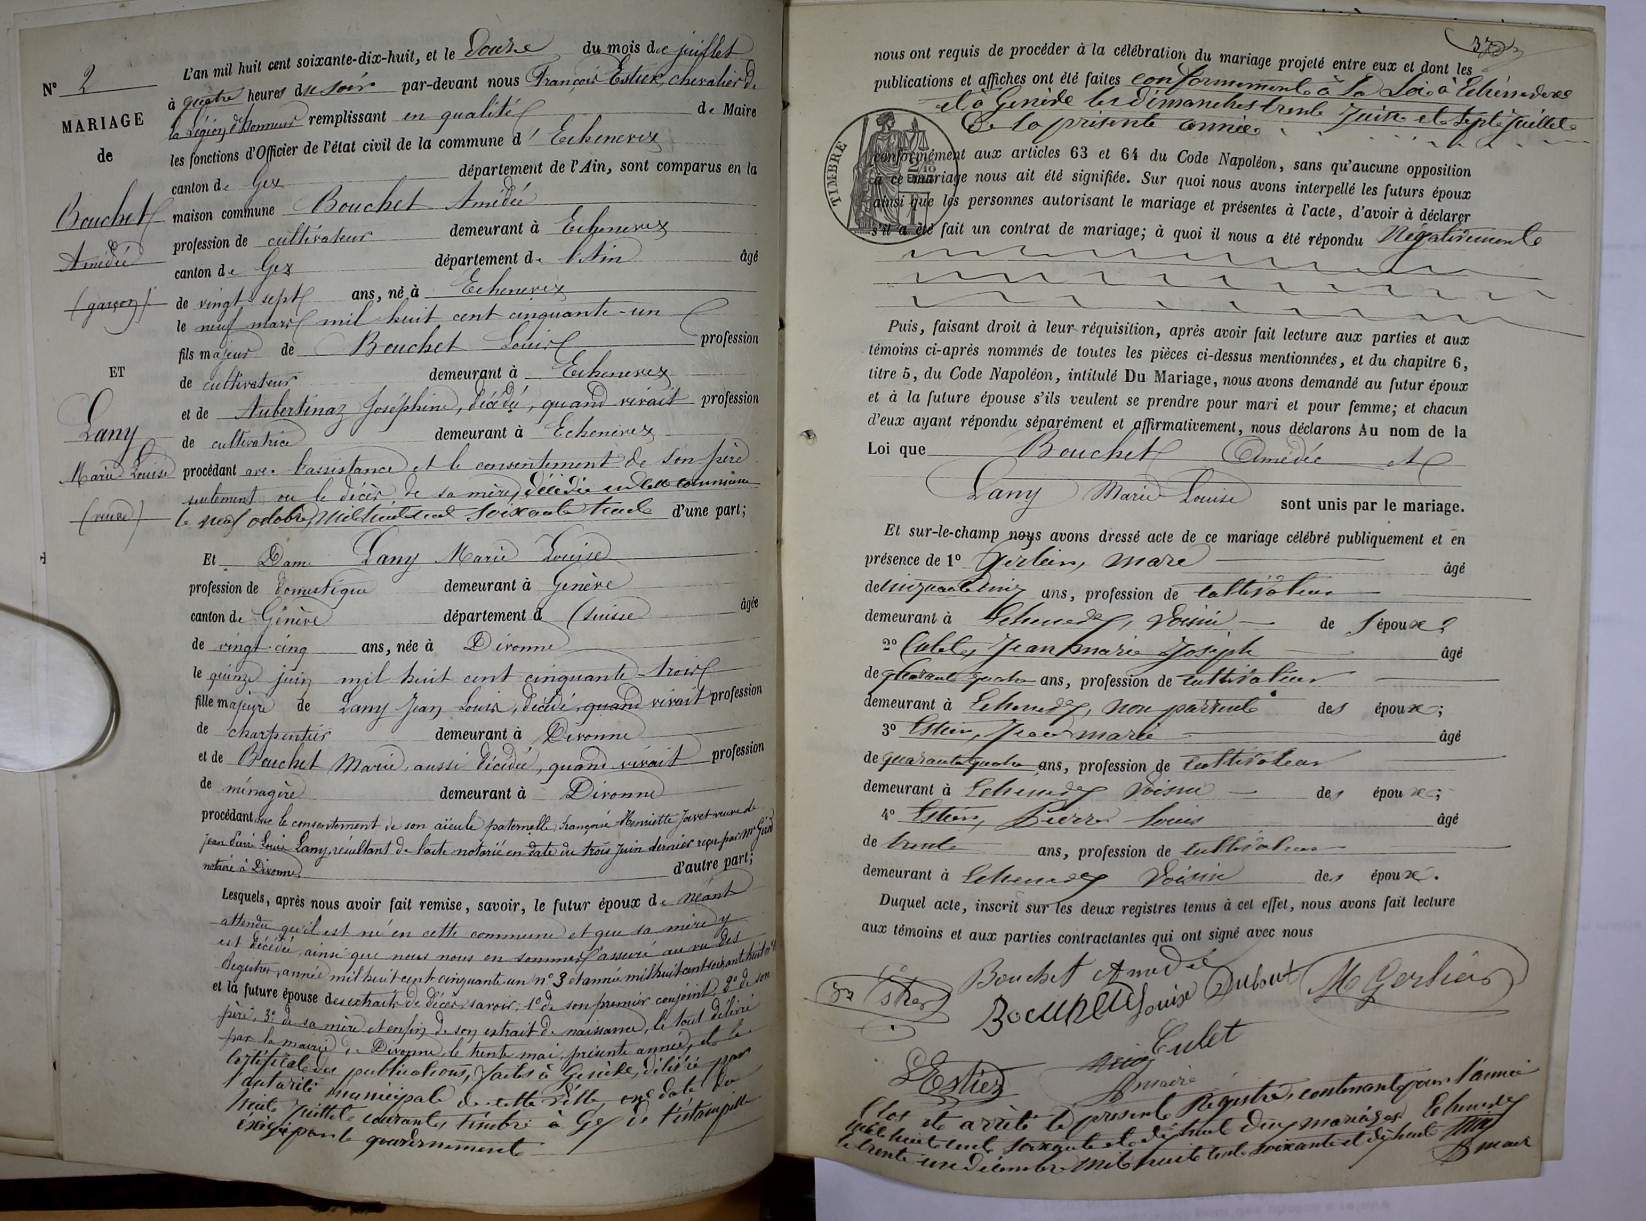 N° 2
MARIAGE
de
Bouchet
Amédée
(garçon)
ET
Lany
Marie Louise
(veuve)
L'an mil huit cent soixante-dix-huit, et le douze du mois de juillet
à quatre heures du soir par-devant nous François Estier, chevalier de
la Légion d'honneur remplissant en qualité de Maire
les fonctions d'Officier de l'état civil de la commune d' Echenevex
canton de Gex département de l'Ain, sont comparus en la
maison commune Bouchet Amédée
profession de cultivateur demeurant à Echenevex
canton de Gex département de l'Ain âgé
de vingt-sept ans, né à Echenevex
le neuf mars mil huit cent cinquante-un
fils majeur de Bouchet Louis profession
de cultivateur demeurant à Echenevex
et de Aubertinaz Joséphine, décédée, quand vivait profession
de cultivatrice demeurant à Echenevex
procédant avec l'assistance et le consentement de son père
seulement vu le décès de sa mère, décédée en cette commune
le neuf octobre, mil huit cent soixante huit d'une part;
Et Dame Lany Marie Louise
profession de domestique demeurant à Genève
canton de Génève département d (Suisse) âgée
de vingt-cinq ans, née à Divonne
le quinze juin mil huit cent cinquante-trois
fille majeure de Lany Jean Louis, décédé, quand vivait profession
de charpentier demeurant à Divonne
et de Bouchet Marie, aussi décédée, quand vivait profession
de ménagère demeurant à Divonne
procédant avec le consentement de son aïeule paternelle Françoise Henriette veuve de
Louis Lany, résultant de l'acte notarié en date du trois Juin dernier reçu par Mr
notaire à Divonne d'autre part;
Lesquels, après nous avoir fait remise, savoir, le futur époux de néant
attendu qu'il est né en cette commune et que sa mère y
est décédée ainsi que nous nous en sommes assuré au vu des
Registres, année mil huit cent cinquante un n° 3 et année mil huit cent soixante huit
et la future épouse des extraits de décès savoir: 1° de son premier conjoint, 2° de son
père, 3° de sa mère et enfin de son extrait de naissance, le tout délivré
par la mairie de Divonne le trente mai, présente année, et le
certificat des publications, faites à Genève, délivré par
l'autorité municipale de cette ville, en date du
huit Juillet courant, timbré à Gex de l'estampille
exigé par le gouvernement
nous ont requis de procéder à la célébration du mariage projeté entre eux et dont les
publications et affiches ont été faites conformément à la Loi à Echenevex
et à Genève les dimanches trente Juin et sept Juillet
de la présente année
TIMBRE
conformément aux articles 63 et 64 du Code Napoléon, sans qu'aucune opposition
à ce mariage nous ait été signifiée. Sur quoi nous avons interpellé les futurs époux
ainsi que les personnes autorisant le mariage et présentes à l'acte, d'avoir à déclarer
s'il a été fait un contrat de mariage; à quoi il nous a été répondu Négativement
Puis, faisant droit à leur réquisition, après avoir fait lecture aux parties et aux
témoins ci-après nommés de toutes les pièces ci-dessus mentionnées, et du chapitre 6,
titre 5, du Code Napoléon, intitulé Du Mariage, nous avons demandé au futur époux
et à la future épouse s'ils veulent se prendre pour mari et pour femme; et chacun
d'eux ayant répondu séparément et affirmativement, nous déclarons Au nom de la
Loi que Bouchet Amédée et
Lany Marie Louise sont unis par le mariage.
Et sur-le-champ nous avons dressé acte de ce mariage célébré publiquement et en
présence de 1° Gerlier, Marc âgé
de ans, profession de cultivateur
demeurant à Echenevex, voisin de l'époux;
2° Jean Marie Joseph âgé
de quarante quatre ans, profession de cultivateur
demeurant à Echenevex, non parent des époux;
3° Estier, Jean Marie âgé
de quarante quatre ans, profession de cultivateur
demeurant à Echenevex voisin des époux;
4° Estier, Pierre Louis âgé
de trente ans, profession de cultivateur
demeurant à Echenevex voisin des époux.
Duquel acte, inscrit sur les deux registres tenus à cet effet, nous avons fait lecture
aux témoins et aux parties contractantes qui ont signé avec nous
Bouchet Amédé
Estier
Bouchet Louise Dubout
M Gerlier
Culet
L Estier
Maire
Clos et arrêté le présent Registre, contenant pour l'année
mil huit cent soixante et dix huit deux mariages Echenevex
le trente un décembre mil huit cent soixante et dix huit